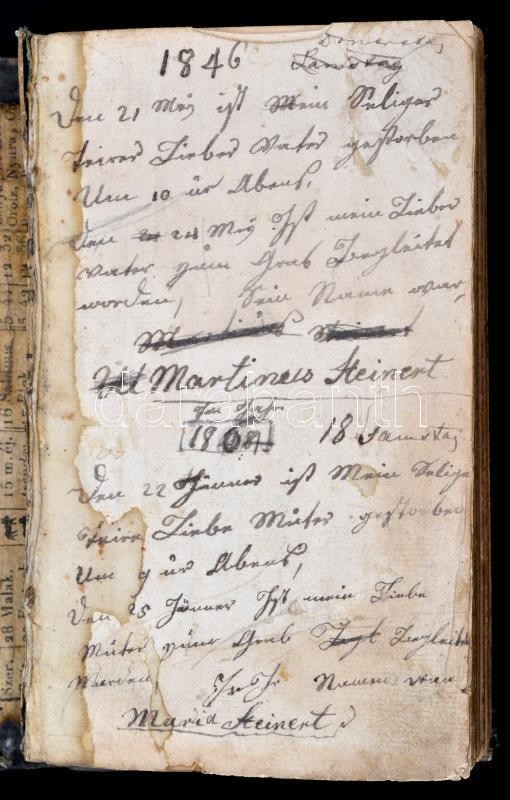 1846
Donerstag
Samstag
Den 21 Mey ist Mein Seliger
teirer Lieber Vater gestorben
Um 10 ur Abens,
den 24 Mey Ist mein Lieber
Vater zum Grab Begleitet
worden, Sein Name war,
Martineus Steinert
Im Jahr
1864 18 Samstag
Den 22 Jänner ist Mein Selige
teire Liebe Muter gestorben
Um 9 ur Abens,
Den 25 Jänner Ist mein Liebe
Muter zum Grab Begleitet
Worden, Ihr Namen war
Maria Steinert
darabanth
Szer. 28 Malak.
15 m. ej. 16